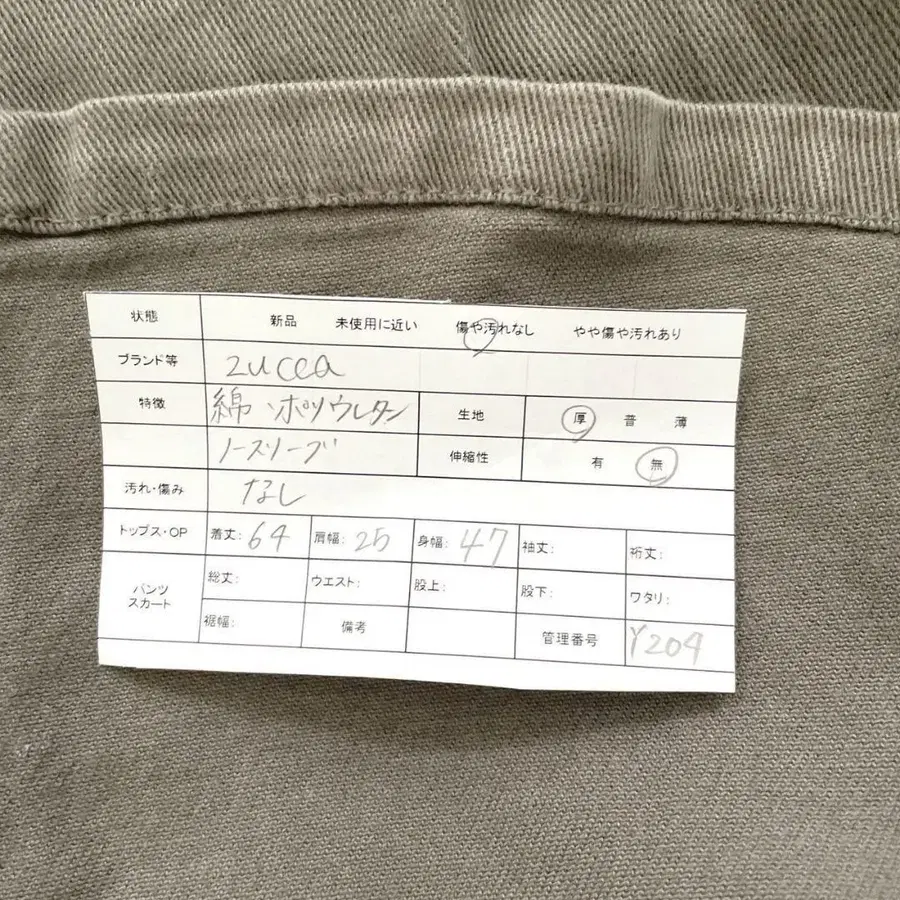 状態 新品 未使用に近い 傷や汚れなし やや傷や汚れあり
ブランド等 zucca
特徴 綿 ポリウレタン 生地 厚 普 薄
ノースリーブ 伸縮性 有 無
汚れ・傷み なし
トップス・OP 着丈: 64 肩幅: 25 身幅: 47 袖丈: 裄丈:
パンツ スカート 総丈: ウエスト: 股上: 股下: ワタリ:
裾幅: 備考 管理番号 Y204